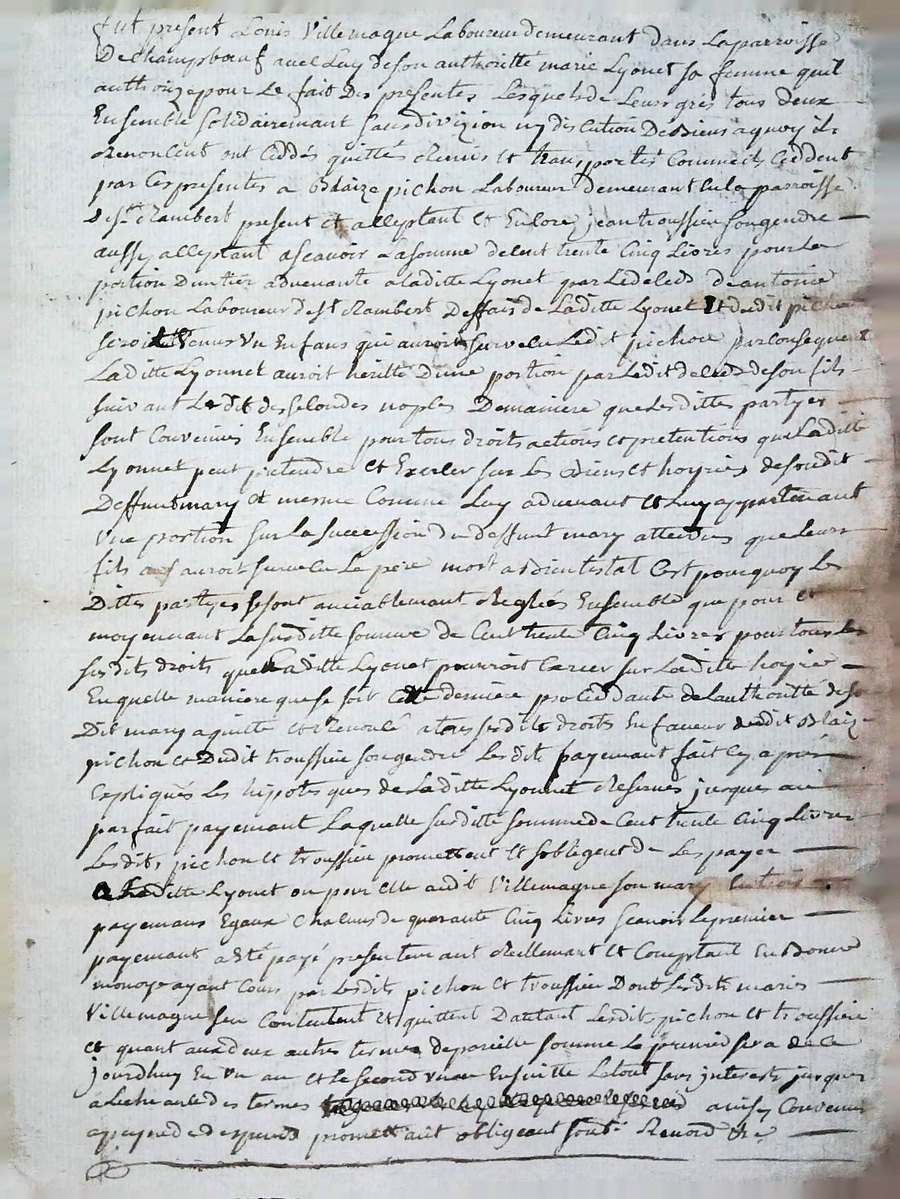 fut présent Louis Villemagne Laboureur demeurant dans La parroisse
De Champbœuf avec Luy de son authoritté marie Lyonet sa femme quil
authorize pour Le fait Des presentes Lesquels de Leurs grés tous deux
Ensemble solidairemant sans divizion ny discution De Biens a quoy ils
Renoncent ont Ceddés quittés Remis Et transportés Comme ils Ceddent
par Ces presentes a Blaize pichon Laboureur demeurant En la parroisse
De st Rambert present Et acceptant Et Encore jean troussieu son gendre
aussy acceptant ascavoir La somme de Cent trente Cinq Livres pour La
portion Dun tier advenante a laditte Lyonet par Le deceds de antoine
pichon Laboureur de st Rambert Deffais de Laditte Lyonet Et dudit pichon
seroit Venus Vn Enfans qui auroit survecu Ledit pichon par consequent
Laditte Lyonnet auroit herité Dune portion par Ledit deceds de son fils
suivant Ledit des segondes nopces De maniere que Lesdittes partyes
sont Convenues Ensemble pour tous droits actions et pretentions que Laditte
Lyonnet peut pretendre Et Exercer sur Les Biens et hoyries de sondit
Deffunt mary Et mesme Comme Luy advenant Et Luy appartenant
Vne portion sur La succession du deffunt mary attendus que Leurs
fils auroit survecu Le pere mort abintestat C'est pourquoy Les
Dittes partyes se sont amiablemant Reglées Ensemble que pour Et
moyennant La susditte somme de Cent trente Cinq Livres pour tous Les
susdits droits que Laditte Lyonet pourroit Exercer sur Laditte hoyrie
En quelle maniere que se soit Cette derniere procedante de Lauthoritté de so
Dit mary a quitté et Renoncé a tous susdits droits En faveur dudit Blaize
pichon et Dudit troussieu son gendre Lesdits payemant fait Cy apres
Expliqués Les hipoteques de Laditte Lyonnet Reservés jusques au
parfait payemant Laquelle susditte somme de Cent trente Cinq Livres
Lesdits pichon Et troussieu promettent Et soblegent de Les payer
a Laditte Lyonet ou pour Elle audit Villemagne son mary En trois
payemans Egaux Chacuns de quarante Cinq Livres scavoir Le premier
payemant a Eté payé presentemant Reellemant Et Comptant En Bonne
monoye ayant Cours par Lesdits pichon Et troussieu Dont Lesdits mariés
Villemagne sen Contentent Et quittent Dautant Lesdits pichon Et troussieu
Et quant aux deux autres termes de pareille somme Le premier sera de Ce
jourdhuy En Vn an Et Le second Vn an Ensuitte Le tout sans interests jusques
a Leche ance des termes ainsy Convenus
a peyne de depends promettant obligeant soub. Renond Etc